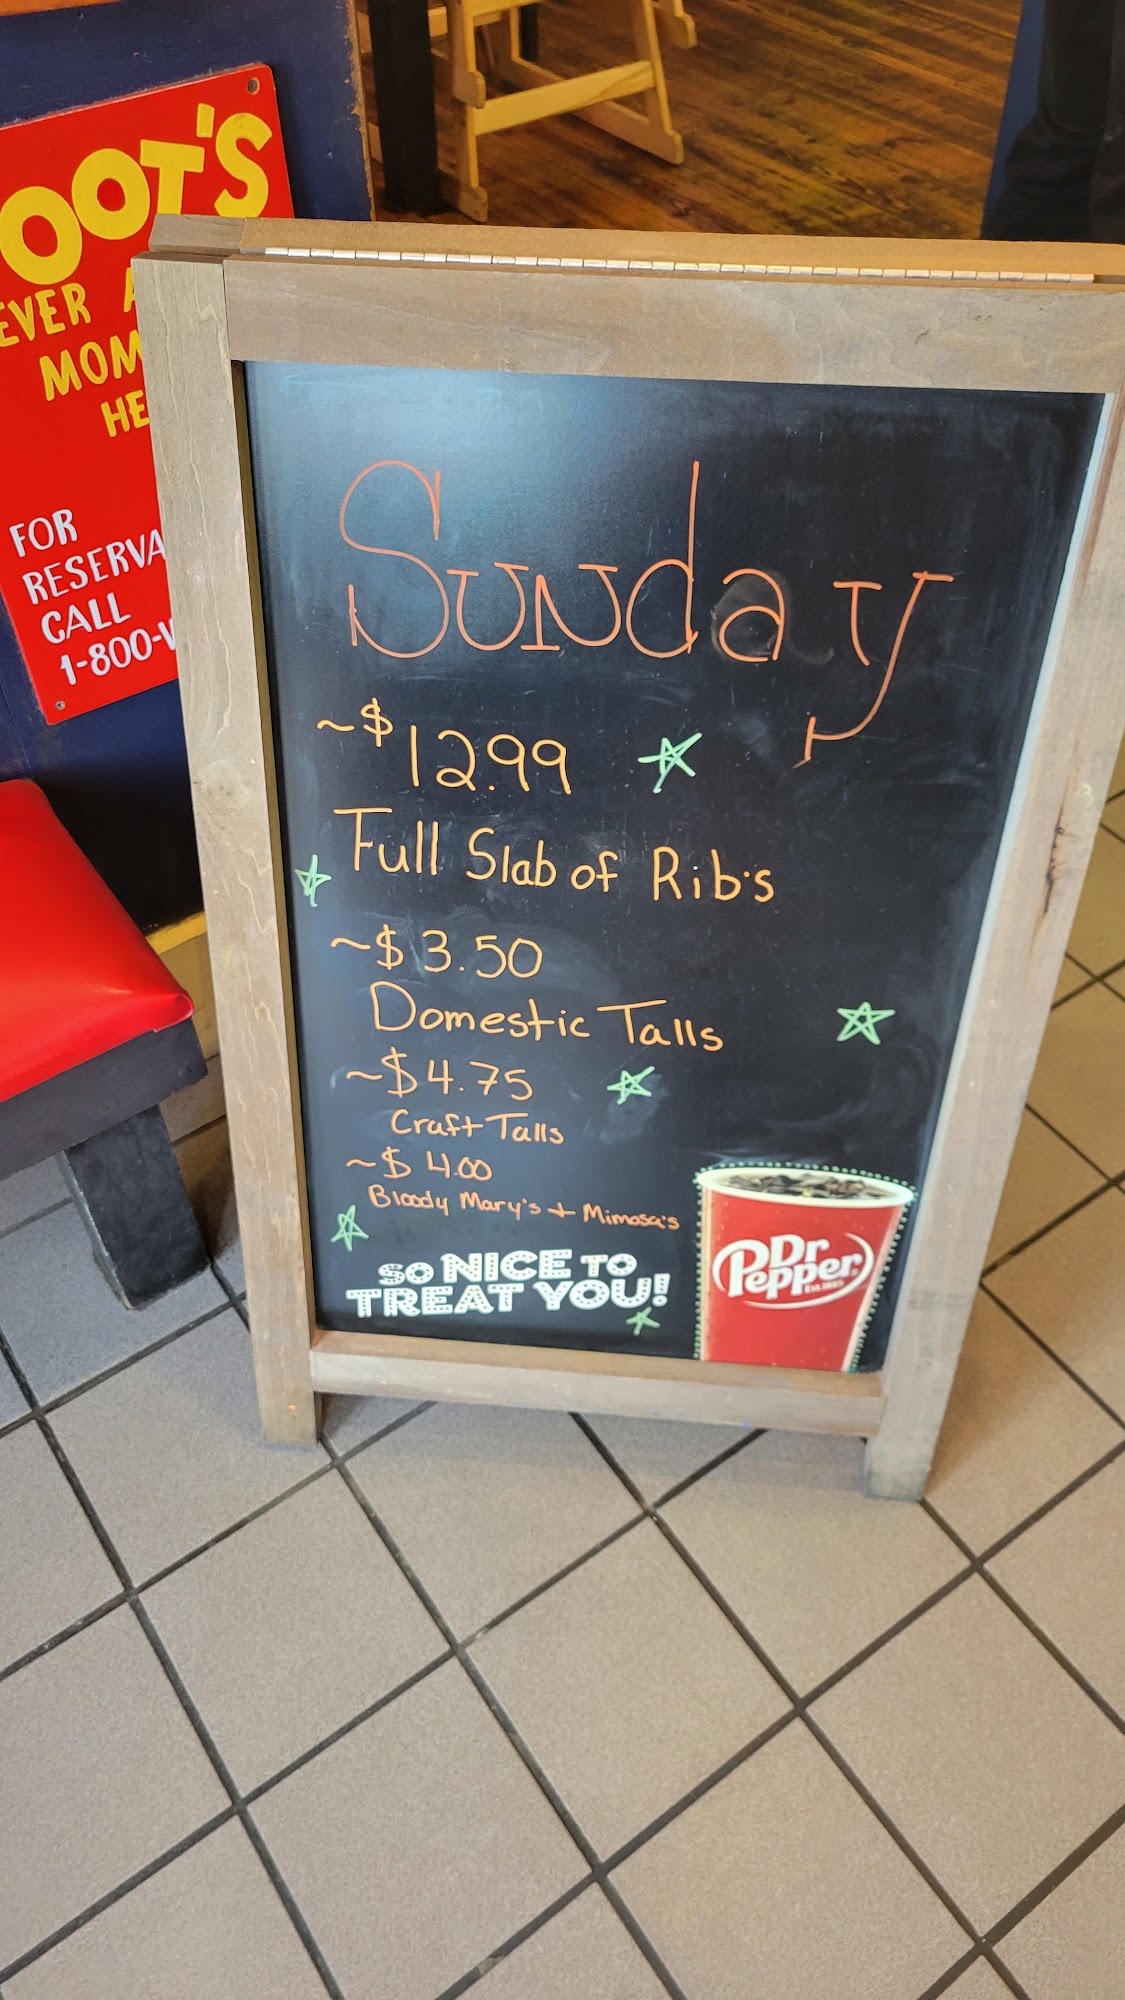 OOT'S
EVER A
MOM
HE
FOR
RESERVA
CALL
1-800-
Sunday
~$12.99
Full Slab of Rib's
~$3.50
Domestic Talls
~$4.75
Craft Talls
~$4.00
Bloody Mary's + Mimosa's
SO NICE TO
TREAT YOU!
Dr
Pepper